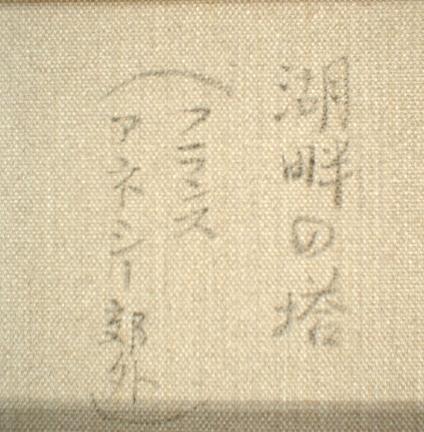 湖畔の塔
(フランス
アネシー郊外)